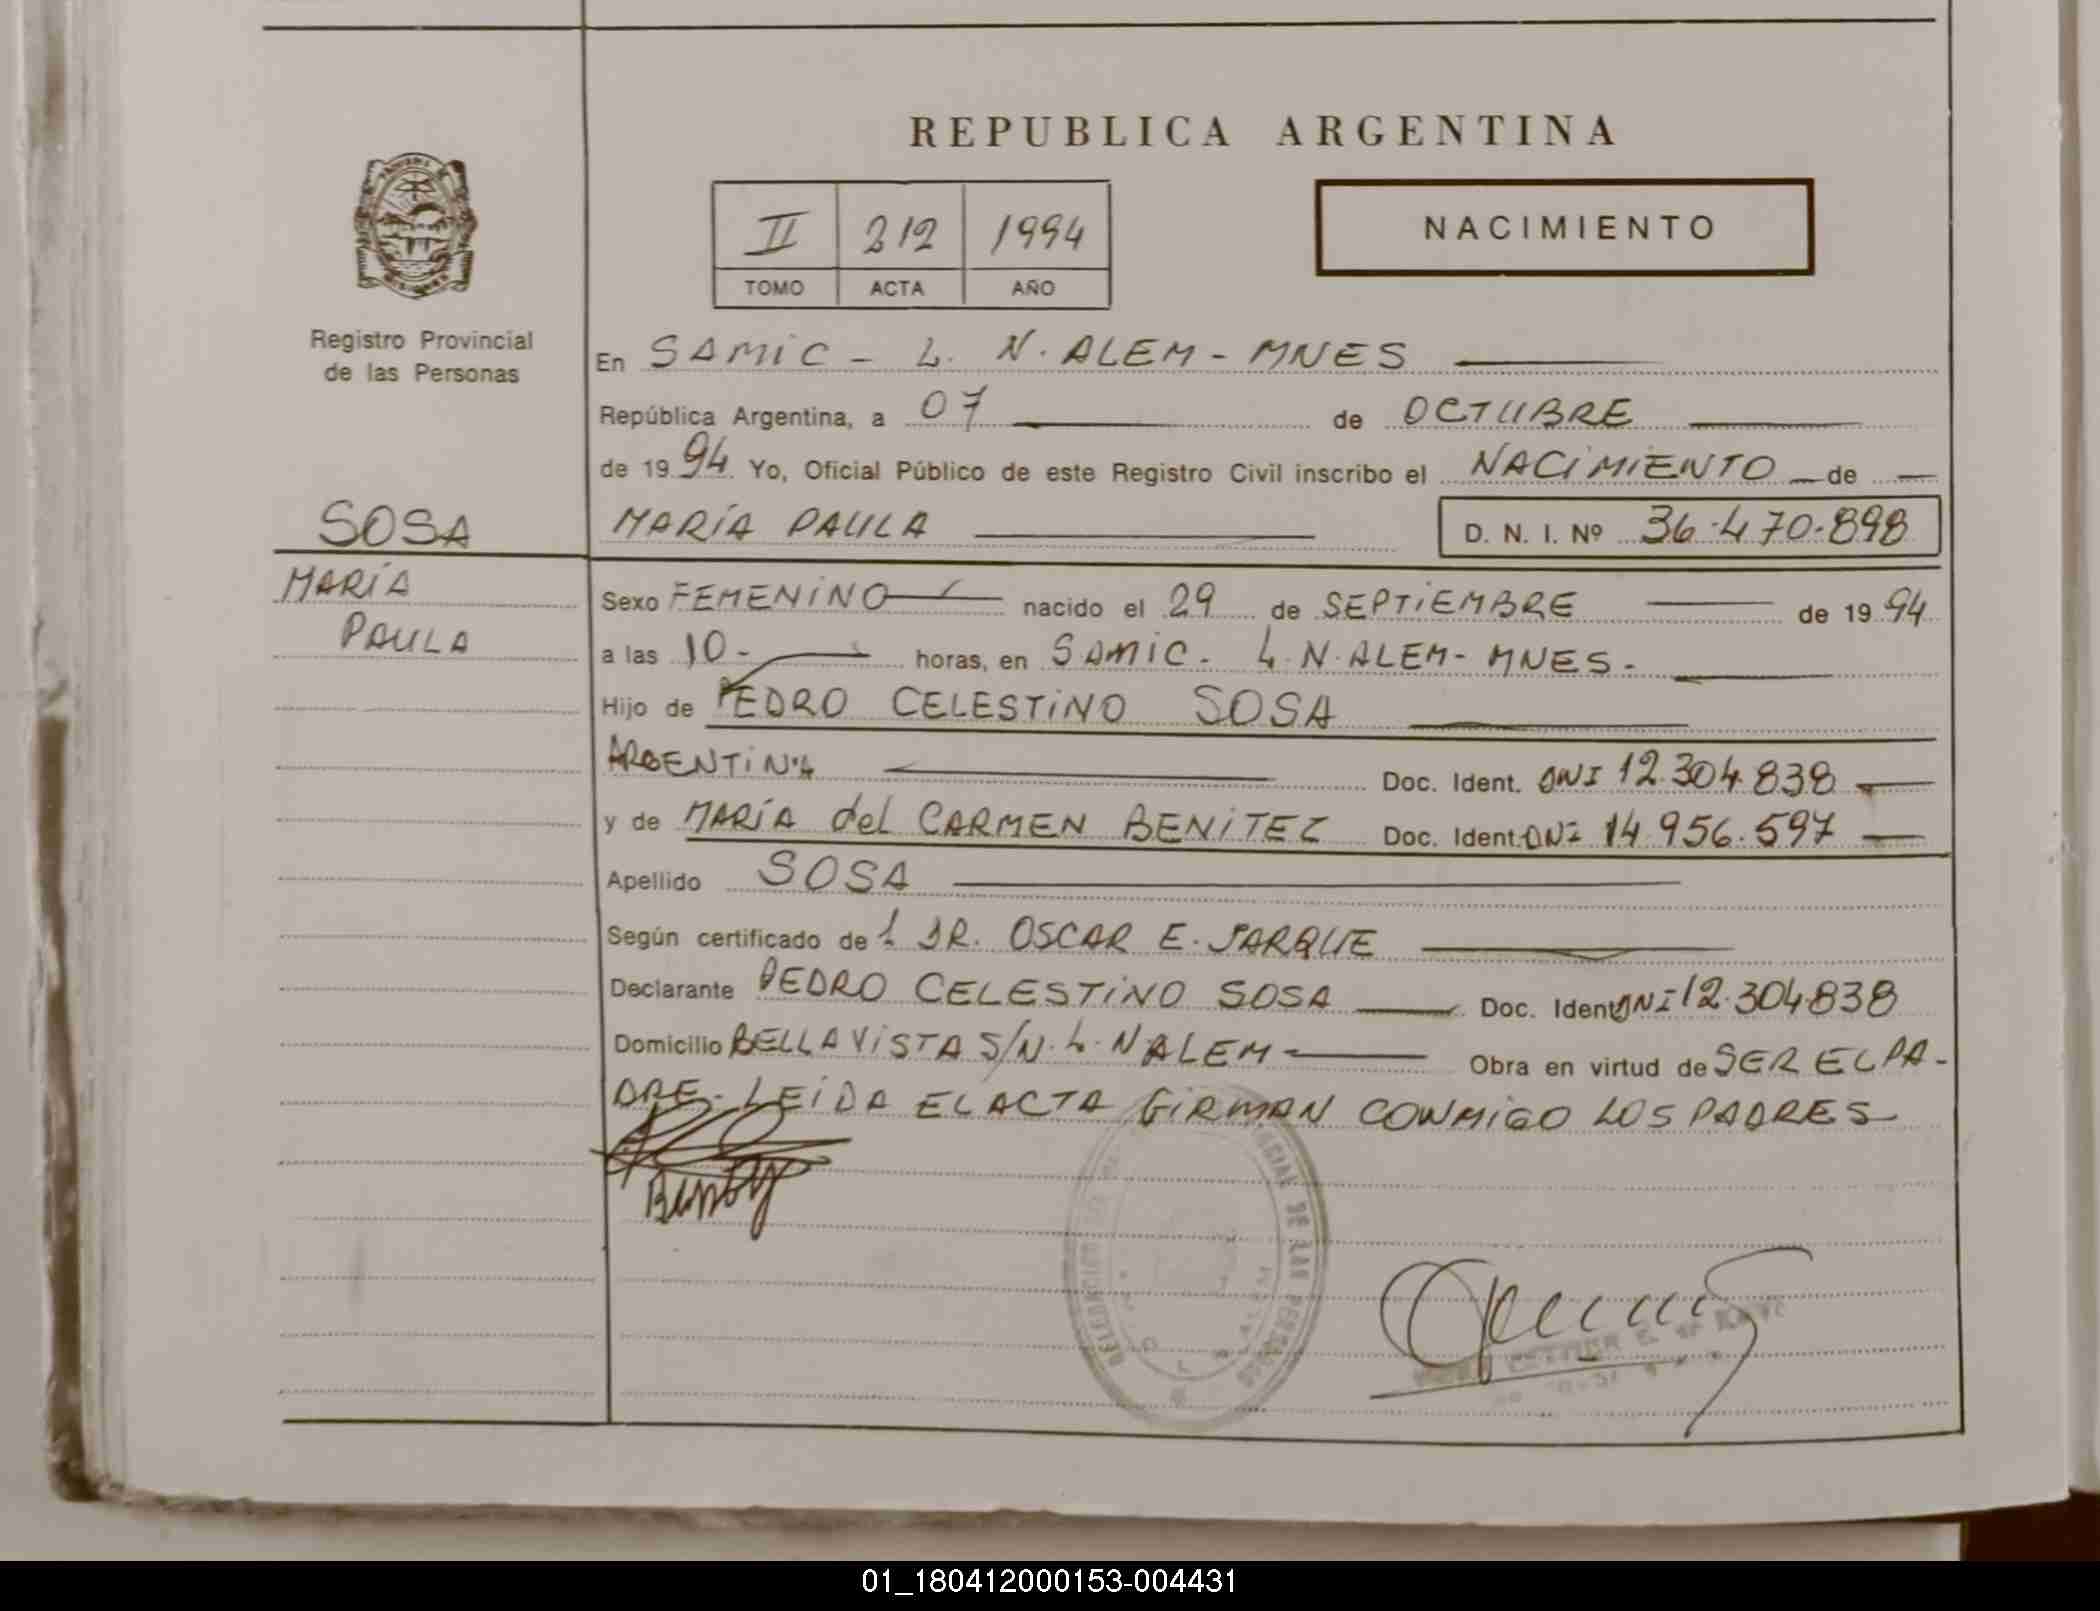 REPUBLICA ARGENTINA
II 212 1994
TOMO ACTA AÑO
NACIMIENTO
Registro Provincial
de las Personas
En SAMIC - L. N. ALEM - MNES
República Argentina, a 07 de OCTUBRE
de 1994 Yo, Oficial Público de este Registro Civil inscribo el NACIMIENTO de
SOSA
MARÍA PAULA D. N. I. Nº 36.470.898
MARÍA
PAULA
Sexo FEMENINO nacido el 29 de SEPTIEMBRE de 1994
a las 10- horas, en SAMIC. L.N.ALEM- MNES.
Hijo de PEDRO CELESTINO SOSA
ARGENTINA Doc. Ident. DNI 12.304.838
y de MARÍA del CARMEN BENITEZ Doc. Ident. DNI 14.956.597
Apellido SOSA
Según certificado de DR. OSCAR E. JARQUE
Declarante PEDRO CELESTINO SOSA Doc. Ident DNI 12.304.838
Domicilio BELLA VISTA S/N. L. N ALEM Obra en virtud de SER EL PA-
DRE. LEIDA EL ACTA FIRMAN CONMIGO LOS PADRES
DELEGACION DE LAS PERSONAS
01_180412000153-004431